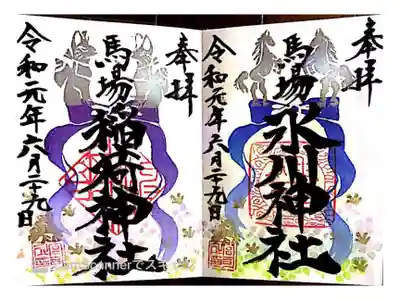 奉拝
馬場氷川神社
令和元年六月二十九日
奉拝
馬場稲荷神社
令和元年六月二十九日